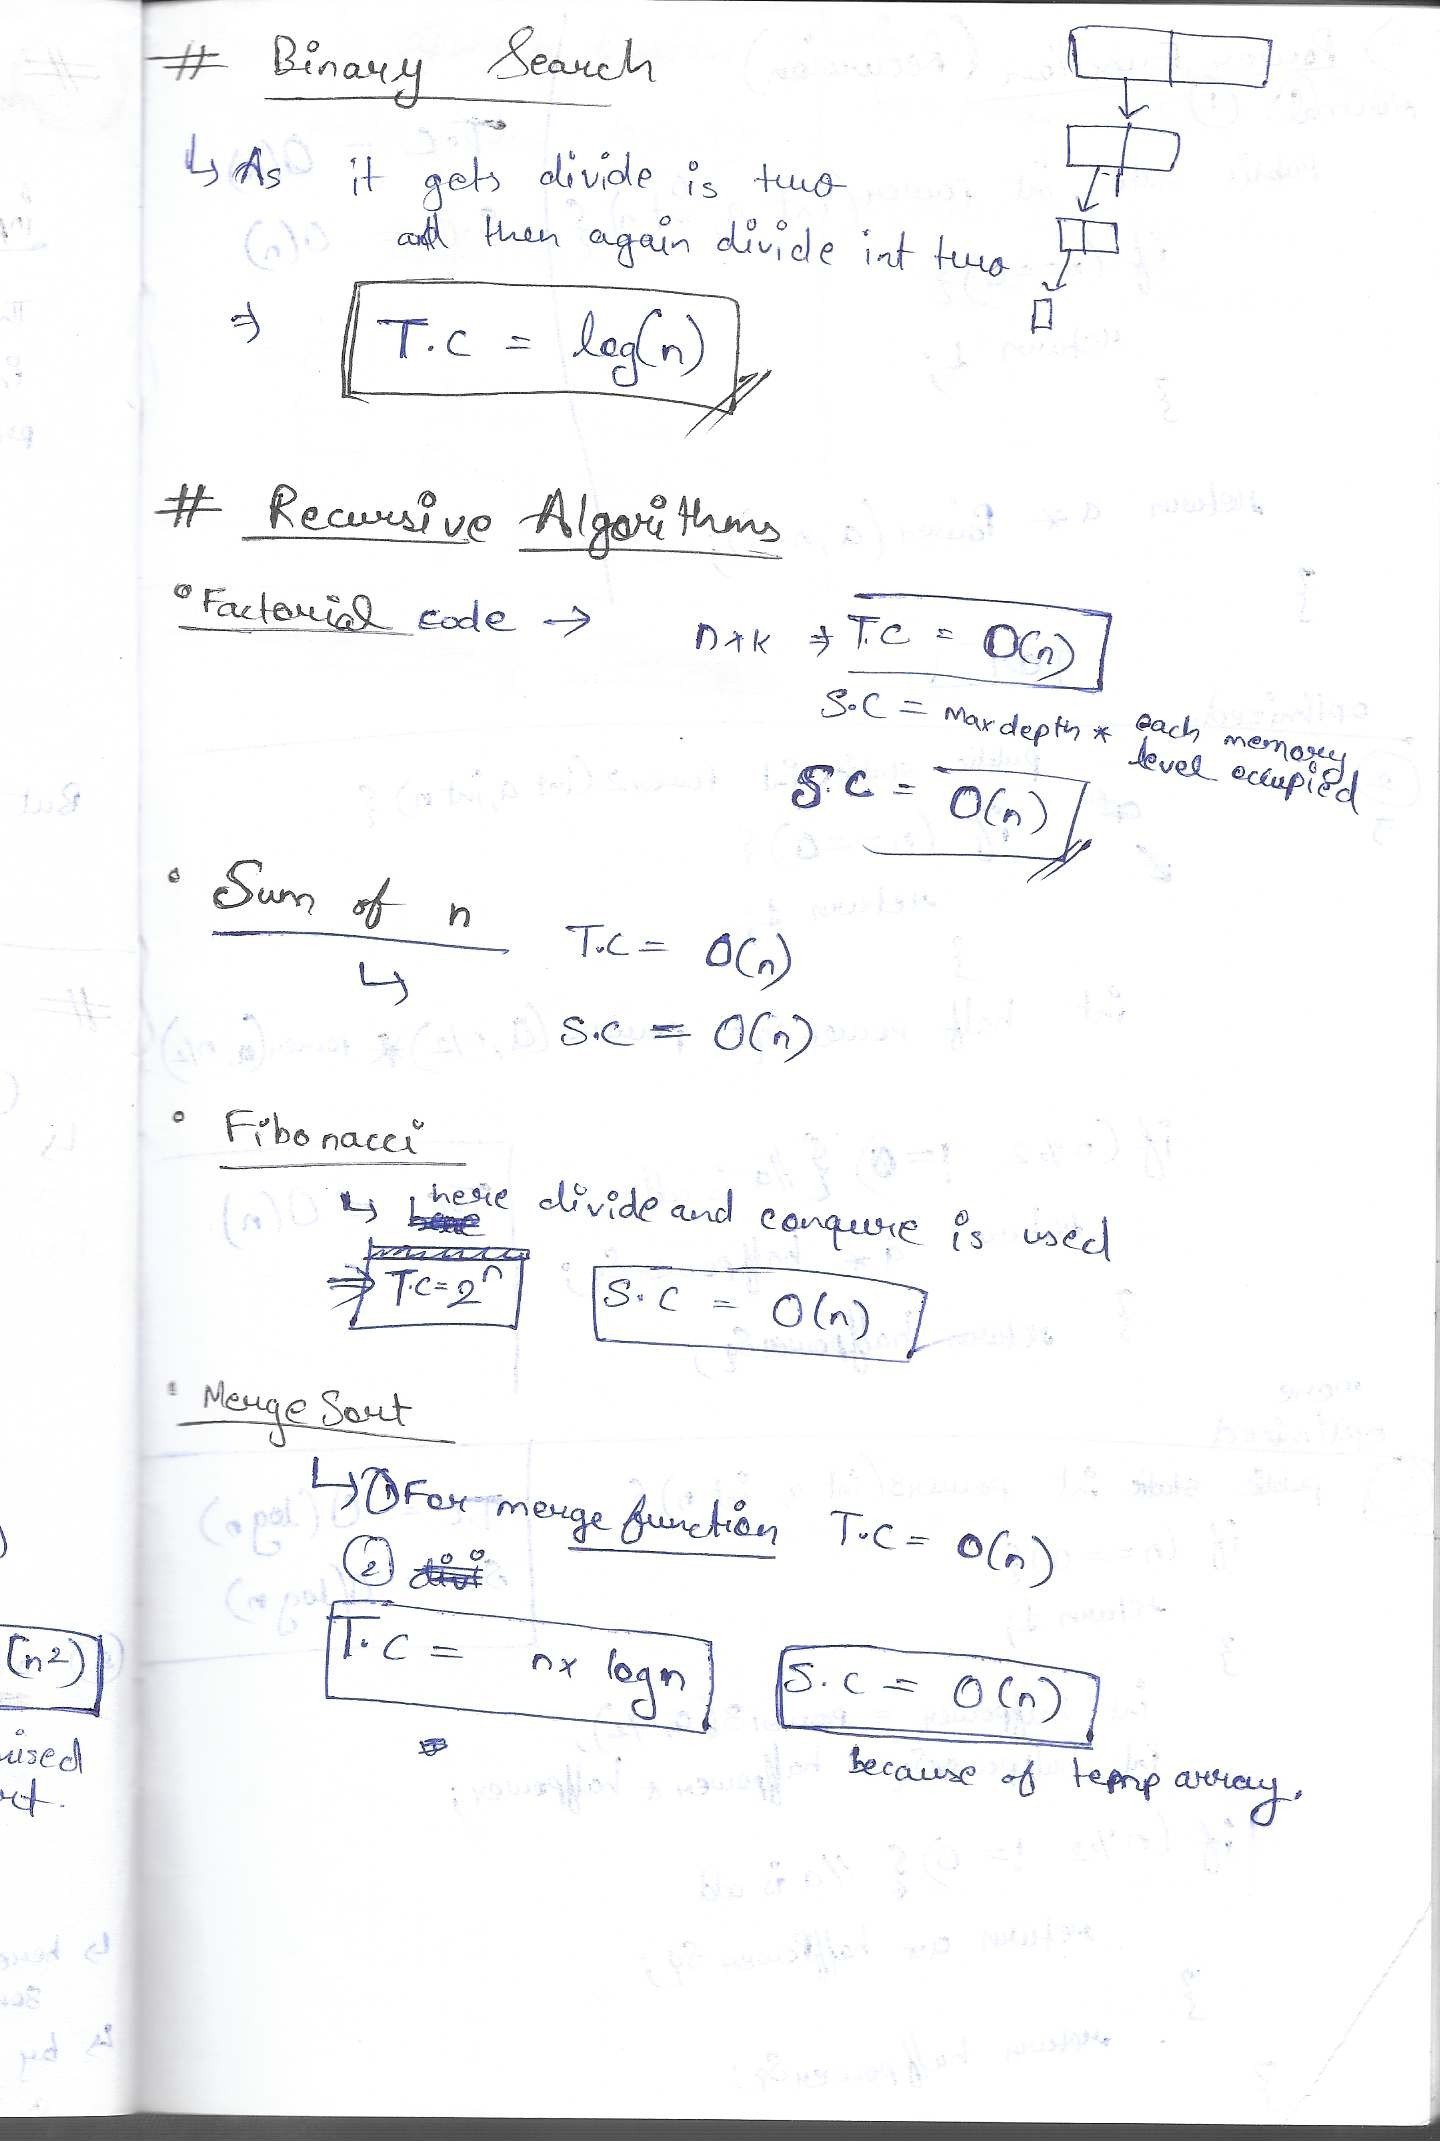 # Binary Search
↳ As it gets divide is two
and then again divide int two
⇒ T.C = log(n)
# Recursive Algorithms
• Factorial code → n*k ⇒ T.C = O(n)
S.C = Max depth * each memory
level occupied
S.C = O(n)
• Sum of n
↳ T.C = O(n)
S.C = O(n)
• Fibonacci
↳ here divide and conqure is used
⇒ T.C = 2^n S.C = O(n)
• Merge Sort
↳ ① For merge function T.C = O(n)
②
T.C = n x logn S.C = O(n)
because of temp array.
(n2)